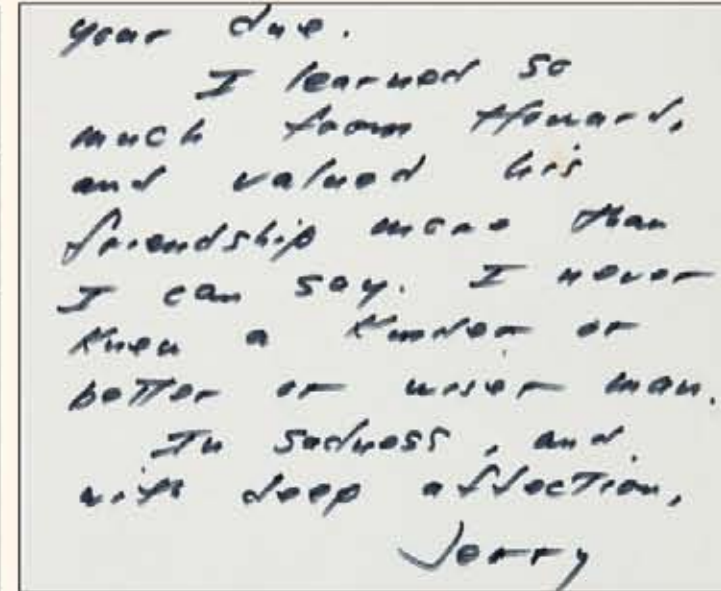 your due.
I learned so
much from Howard,
and valued his
friendship more than
I can say. I never
knew a kinder or
better or wiser man.
In sadness, and
with deep affection,
Jerry